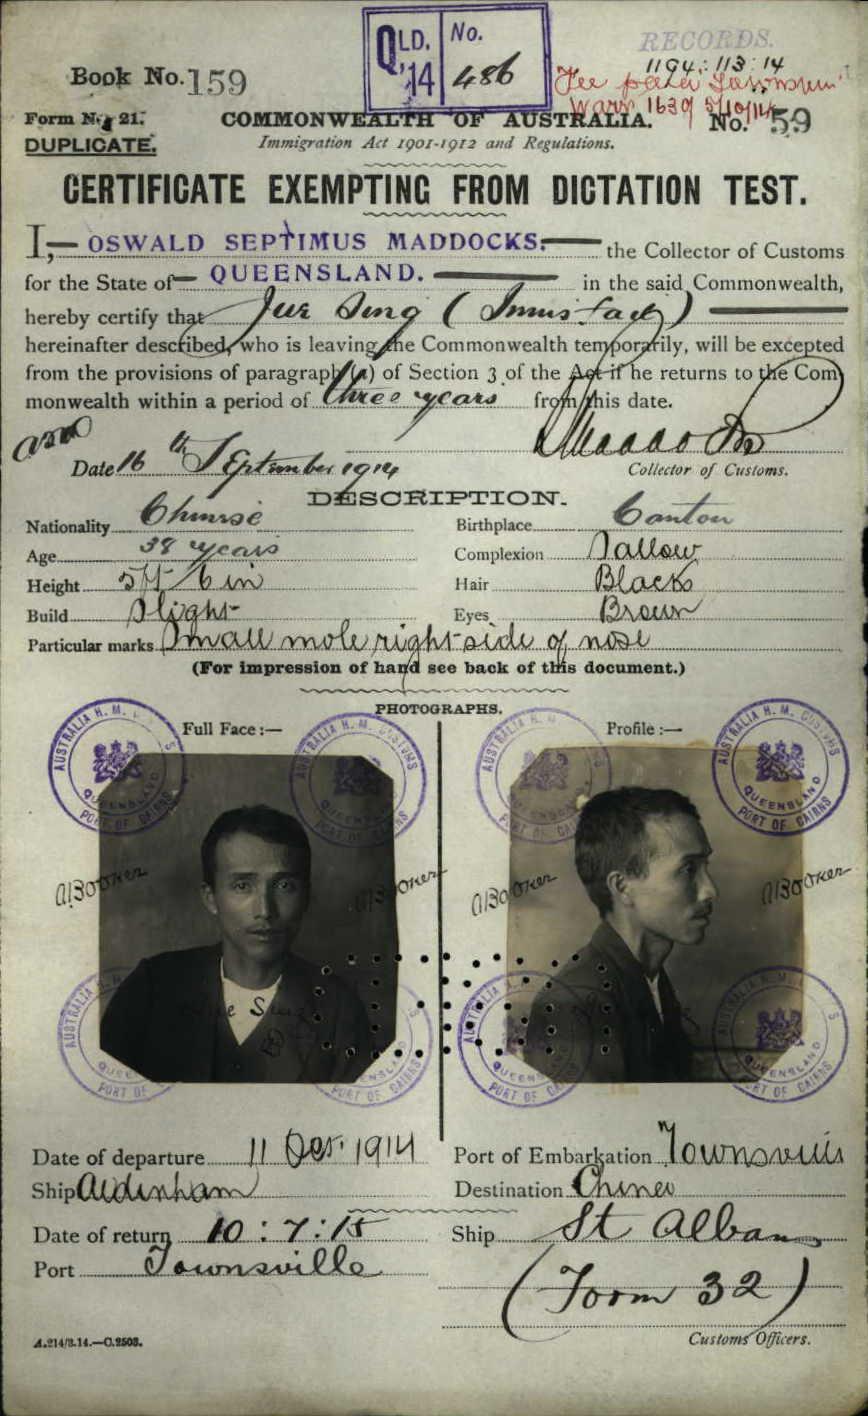 QLD. No.
'14 486
RECORDS.
1194:113:14
Book No. 159
Fee paid
Form No. 21.
COMMONWEALTH OF AUSTRALIA.
No. 59
DUPLICATE.
Immigration Act 1901-1912 and Regulations.
CERTIFICATE EXEMPTING FROM DICTATION TEST.
I, OSWALD SEPTIMUS MADDOCKS. the Collector of Customs
for the State of QUEENSLAND. in the said Commonwealth,
hereby certify that Jue Sing
hereinafter described, who is leaving the Commonwealth temporarily, will be excepted
from the provisions of paragraph (a) of Section 3 of the Act if he returns to the Com
monwealth within a period of three years from this date.
Date 16th September 1914
Collector of Customs.
DESCRIPTION.
Nationality Chinese Birthplace Canton
Age 38 years Complexion Sallow
Height 5ft 6in Hair Black
Build Slight Eyes Brown
Particular marks Small mole right side of nose
(For impression of hand see back of this document.)
PHOTOGRAPHS.
Full Face :— Profile :—
AUSTRALIA H. M. CUSTOMS
QUEENSLAND
PORT OF CAIRNS
Date of departure 11 Oct. 1914 Port of Embarkation Townsville
Ship Aldenham Destination China
Date of return 10:7:15 Ship St Albans
Port Townsville
(Form 32)
A.214/3.14.—C.2503.
Customs Officers.